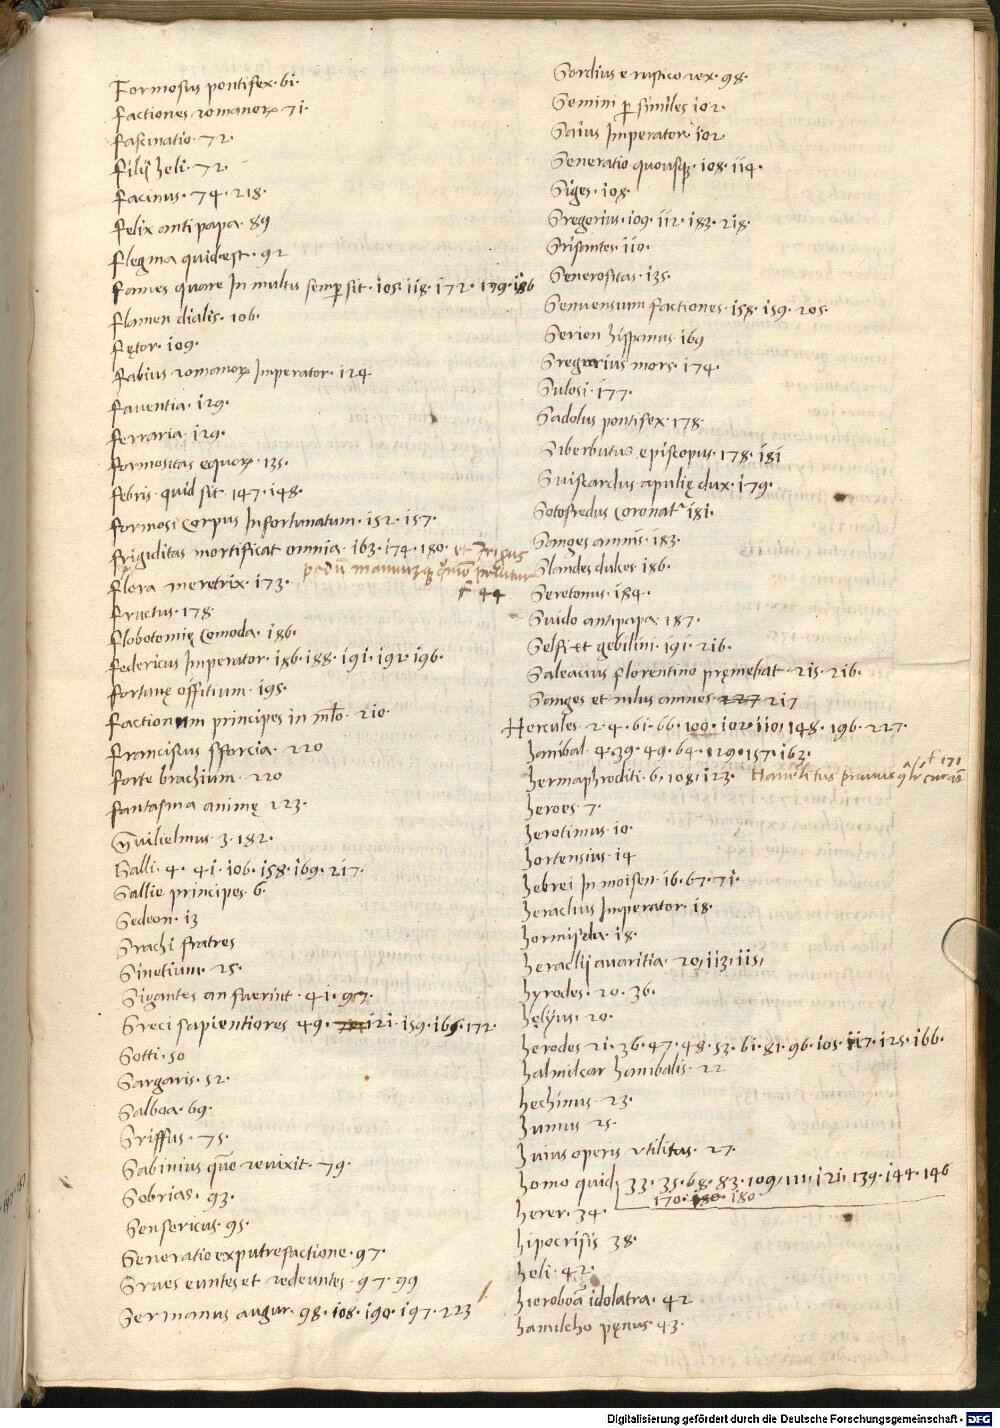 Formosus pontifex. 61.
Factiones romanorꝝ 71.
Fascinatio. 72.
Filij heli. 72.
Facinus. 74. 218.
Felix antipapa. 89
Flegma quid est. 92
Fames quare In multis semp sit. 105. 118. 172. 179. 186
Flamen dialis. 106.
Fętor. 109.
Fabius romanorꝝ Imperator. 124
Faventia. 129.
Ferraria. 129.
Formositas equorꝝ. 135.
Febris quid sit. 147. 148.
Formosi corpus Infortunatum. 152. 157.
Frigiditas mortificat omnia. 163. 174. 180. et Frigus
pedū manuumqꝫ quō pellitur
Flora meretrix. 173. f 44
Fructus. 178
Flobotomię comoda. 186.
Federicus Imperator. 186. 188. 191. 192 196.
Fortunę offitium. 195.
Factionum principes in mlo. 210.
Franciscus sforcia. 220
Forte brachium. 220
Fantasma animę. 223.
Guilielmus. 3. 182.
Galli. 4. 41. 106. 158. 169. 217.
Gallie principes. 6.
Gedeon. 13
Grachi fratres
Ginetium. 25.
Gigantes an fuerint. 41. 97.
Greci sapientiores 49. 121. 159. 165. 172.
Gotti. 50
Gargaris. 52.
Galboa. 69.
Griffus. 75.
Gabinius quō revixit. 79.
Gobrias. 93.
Gensericus. 95.
Generatio ex putrefactione. 97.
Grues euntes et redeuntes. 97. 99
Germanus augur. 98. 108. 190. 197. 223
Gordius e rustico rex. 98.
Gemini p similes 102.
Gaius Imperator 102
Generatio quousqꝫ. 108. 114.
Giges. 108.
Gregorius. 109. 112. 183. 218.
Grisantes. 110.
Generositas. 135.
Genuensium factiones. 158. 159. 205.
Gerien hispanus 169
Gregorius mors. 174.
Gulosi. 177.
Gadolus pontifex. 178.
Giberbutus episcopus. 178. 181
Guiscardus apulię dux. 179.
Gotofredus coronat 181.
Ganges amnis. 183.
Glandes dulces 186.
Geretonus. 184.
Guido antipapa. 187.
Gelfi et gebilini. 191. 216.
Galeacius florentino pręmebat. 215. 216.
Ganges et nilus amnes 227 217
Hercules. 2. 4. 61. 66. 100. 102. 110. 148. 196. 227.
hanibal. 4. 39. 49. 64. 129. 157. 163.
hermaphroditi. 6. 108. 123. Hanelitus pravus qlr curat f 171
heroes. 7.
herotimus. 10.
hortensius. 14
hebrei In moisen. 16. 67. 71.
heraclius Imperator. 18.
hormisda. 18.
heraclij avaritia. 20. 113. 115.
hyrodes. 20. 36.
hęlyus. 20.
herodes 21. 36. 47. 48. 53. 61. 81. 96. 105. 117. 125. 166.
halmilcar hanibalis. 22
hechinus. 23.
hunus 25.
huius operis utilitas. 27.
homo quid 33. 35. 68. 83. 109. 111. 121. 139. 144. 146
170. 180. 180.
herer. 34.
hipocrisis 38.
heli. 42.
hieroboā idolatra. 42
hamilcho pęnus. 43.
Digitalisierung gefördert durch die Deutsche Forschungsgemeinschaft - DFG